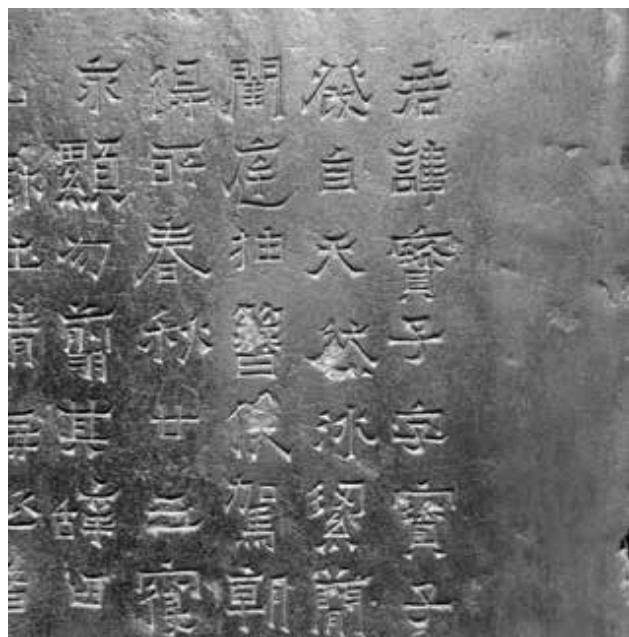 君諱寶子字寶子
發自天然冰絜簡
閨庭抽簪俟駕朝
得所春秋廿五寑
永顯勿翦其辭曰